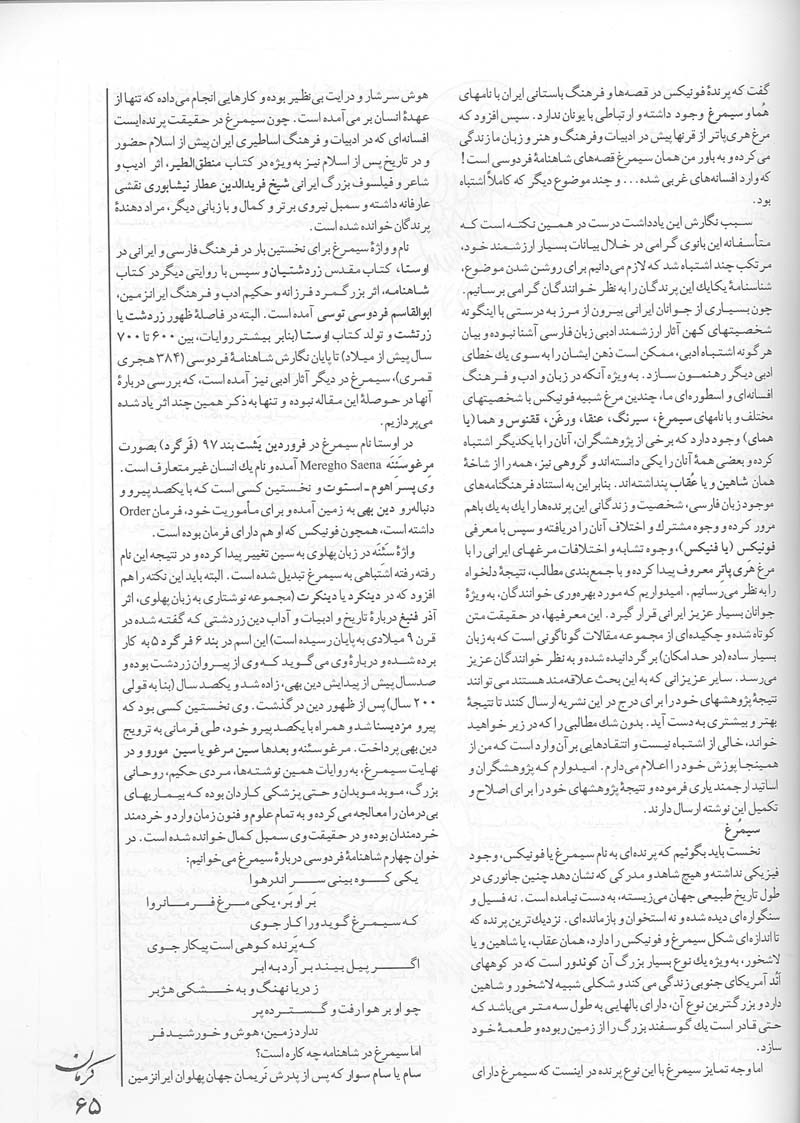 گفت که پرندهٔ فونیکس در قصه‌ها و فرهنگ باستانی ایران با نامهای
هُما و سیمرغ وجود داشته و ارتباطی با یونان ندارد. سپس افزود که
مرغ هری پاتر از قرنها پیش در ادبیات و فرهنگ و هنر و زبان ما زندگی
می‌کرده و به باور من همان سیمرغ قصه‌های شاهنامهٔ فردوسی است!
که وارد افسانه‌های غربی شده... و چند موضوع دیگر که کاملاً اشتباه
بود.
سبب نگارش این یادداشت درست در همین نکته است که
متأسفانه این بانوی گرامی در خلال بیانات بسیار ارزشمند خود،
مرتکب چند اشتباه شد که لازم می‌دانیم برای روشن شدن موضوع،
شناسنامهٔ یکایك این پرندگان را به نظر خوانندگان گرامی برسانیم.
چون بسیاری از جوانان ایرانی بیرون از مرز به درستی با اینگونه
شخصیتهای کهن آثار ارزشمند ادبی زبان فارسی آشنا نبوده و بیان
هرگونه اشتباه ادبی، ممکن است ذهن ایشان را به سوی یك خطای
ادبی دیگر رهنمون سازد. به ویژه آنکه در زبان و ادب و فرهنگ
افسانه‌ای و اسطوره‌ای ما، چندین مرغ شبیه فونیکس با شخصیتهای
مختلف و با نامهای سیمرغ، سیرنگ، عنقا، ورغن، ققنوس و هما (یا
همای) وجود دارد که برخی از پژوهشگران، آنان را با یکدیگر اشتباه
کرده و بعضی همهٔ آنان را یکی دانسته‌اند و گروهی نیز، همه را از شاخهٔ
همان شاهین و یا عُقاب پنداشته‌اند. بنابراین به استناد فرهنگنامه‌های
موجود زبان فارسی، شخصیت و زندگانی این پرنده‌ها را یك به یك باهم
مرور کرده و وجوه مشترك و اختلاف آنان را دریافته و سپس با معرفی
فونیکس (یا فنیکس)، وجوه تشابه و اختلافات مرغهای ایرانی را با
مرغ هَری پاتِر معروف پیدا کرده و با جمع‌بندی مطالب، نتیجهٔ دلخواه
را به نظر می‌رسانیم. امیدواریم که مورد بهره‌وری خوانندگان، به ویژهٔ
جوانان بسیار عزیز ایرانی قرار گیرد. این معرفیها، در حقیقت متن
کوتاه شده و چکیده‌ای از مجموعه مقالات گوناگونی است که به زبان
بسیار ساده (در حد امکان) برگردانیده شده و به نظر خوانندگان عزیز
می‌رسد. سایر عزیزانی که به این بحث علاقه‌مند هستند می‌توانند
نتیجهٔ پژوهشهای خود را برای درج در این نشریه ارسال کنند تا نتیجهٔ
بهتر و بیشتری به دست آید. بدون شك مطالبی را که در زیر خواهید
خواند، خالی از اشتباه نیست و انتقادهایی بر آن وارد است که من از
همینجا پوزش خود را اعلام می‌دارم. امیدوارم که پژوهشگران و
اساتید ارجمند یاری فرموده و نتیجهٔ پژوهشهای خود را برای اصلاح و
تکمیل این نوشته ارسال دارند.
سیمُرغ
نخست باید بگوئیم که پرنده‌ای به نام سیمرغ یا فونیکس، وجود
فیزیکی نداشته و هیچ شاهد و مدرکی که نشان دهد چنین جانوری در
طول تاریخ طبیعی جهان می‌زیسته، به دست نیامده است. نه فسیل و
سنگواره‌ای دیده شده و نه استخوان و بازمانده‌ای. نزدیك ترین پرنده که
تا اندازه‌ای شکل سیمرغ و فونیکس را دارد، همان عقاب، یا شاهین و یا
لاشخور، به ویژه یك نوع بسیار بزرگ آن کوندور است که در کوههای
آنُد آمریکای جنوبی زندگی می‌کند و شکلی شبیه لاشخور و شاهین
دارد و بزرگترین نوع آن، دارای بالهایی به طول سه متر می‌باشد که
حتی قادر است یك گوسفند بزرگ را از زمین ربوده و طعمهٔ خود
سازد.
اما وجه تمایز سیمرغ با این نوع پرنده در اینست که سیمرغ دارای
هوش سرشار و درایت بی‌نظیر بوده و کارهایی انجام می‌داده که تنها از
عهدهٔ انسان بر می‌آمده است. چون سیمرغ در حقیقت پرنده‌ایست
افسانه‌ای که در ادبیات و فرهنگ اساطیری ایران پیش از اسلام حضور
و در تاریخ پس از اسلام نیز به ویژه در کتاب منطق‌الطیر، اثر ادیب و
شاعر و فیلسوف بزرگ ایرانی شیخ فریدالدین عطار نیشابوری نقشی
عارفانه داشته و سمبل نیروی برتر و کمال و با زبانی دیگر، مراد دهندهٔ
پرندگان خوانده شده است.
نام و واژهٔ سیمرغ برای نخستین بار در فرهنگ فارسی و ایرانی در
اوستا، کتاب مقدس زردشتیان و سپس با روایتی دیگر در کتاب
شاهنامه، اثر بزرگمرد فرزانه و حکیم ادب و فرهنگ ایرانزمین،
ابوالقاسم فردوسی توسی آمده است. البته در فاصلهٔ ظهور زردشت یا
زرتشت و تولد کتاب اوستا (بنابر بیشتر روایات، بین ۶۰۰ تا ۷۰۰
سال پیش از میلاد) تا پایان نگارش شاهنامهٔ فردوسی (۳۸۴ هجری
قمری)، سیمرغ در دیگر آثار ادبی نیز آمده است، که بررسی دربارهٔ
آنها در حوصلهٔ این مقاله نبوده و تنها به ذکر همین چند اثر یاد شده
می‌پردازیم.
در اوستا نام سیمرغ در فروردین یَشت بند ۹۷ (فَرگرد) بصورت
مِرِغوسئنه Meregho Saena آمده و نام یك انسان غیر متعارف است.
وی پسر اهوم ـ استوت و نخستین کسی است که با یکصد پیرو و
دنباله‌رو دین بهی به زمین آمده و برای مأموریت خود، فرمان Order
داشته است، همچون فونیکس که او هم دارای فرمان بوده است.
واژهٔ سئنه در زبان پهلوی به سین تغییر پیدا کرده و در نتیجه این نام
رفته رفته اشتباهی به سیمرغ تبدیل شده است. البته باید این نکته را هم
افزود که در دینکرد یا دینکرت (مجموعه نوشتاری به زبان پهلوی، اثر
آذر فنبغ دربارهٔ تاریخ و ادبیات و آداب دین زردشتی که گفته شده در
قرن ۹ میلادی به پایان رسیده است) این اسم در بند ۶ فرگرد ۵ به کار
برده شده و دربارهٔ وی می‌گوید که وی از پیروان زردشت بوده و
صد سال پیش از پیدایش دین بهی، زاده شد و یکصد سال (بنا به قولی
۲۰۰ سال) پس از ظهور دین در گذشت. وی نخستین کسی بود که
پیرو مزدیسنا شد و همراه با یکصد پیرو خود، طی فرمانی به ترویج
دین بهی پرداخت. مرغو سئنه و بعدها سین مرغو یا سین مورو و در
نهایت سیمرغ، به روایات همین نوشته‌ها، مردی حکیم، روحانی
بزرگ، موبد موبدان و حتی پزشکی کاردان بوده که بیماریهای
بی‌درمان را معالجه می‌کرده و به تمام علوم و فنون زمان وارد و خردمند
خردمندان بوده و در حقیقت وی سمبل کمال خوانده شده است. در
خوان چهارم شاهنامهٔ فردوسی دربارهٔ سیمرغ می‌خوانیم:
یکی کوه بینی سر اندر هوا
بَر او بَر، یکی مرغ فرمانروا
که سیمرغ گوید ورا کار جوی
که پَرنده کوهی است پیکار جوی
اگر پیل بیند بر آرد به ابر
ز دریا نهنگ و به خشکی هژبر
چو او بر هوا رفت و گسترده پر
ندارد زمین، هوش و خورشید فر
اما سیمرغ در شاهنامه چه کاره است؟
سام یا سام سوار که پس از پدرش نَریمان جهان پهلوان ایرانزمین
کرمان
۶۵